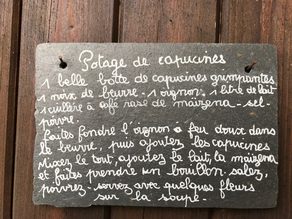 Potage de capucines
1 belle botte de capucines grimpantes
1 noix de beurre - 1 oignon, 1 litre de lait
1 cuillère à café rase de maïzena - sel -
poivre.
Faites fondre l'oignon à feu doux dans
le beurre, puis ajoutez les capucines
Mixez le tout, ajoutez le lait, la maïzena
et faites prendre un bouillon salez,
poivrez - servez avec quelques fleurs
sur la soupe -